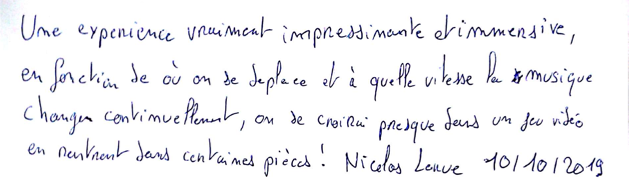 Une experience vraiment impressionante et immersive,
en fonction de où on se deplace et à quelle vitesse la musique
change continuellement, on se croirai presque dans un jeu vidéo
en rentrant dans certaines pièces ! Nicolas 10/10/2019